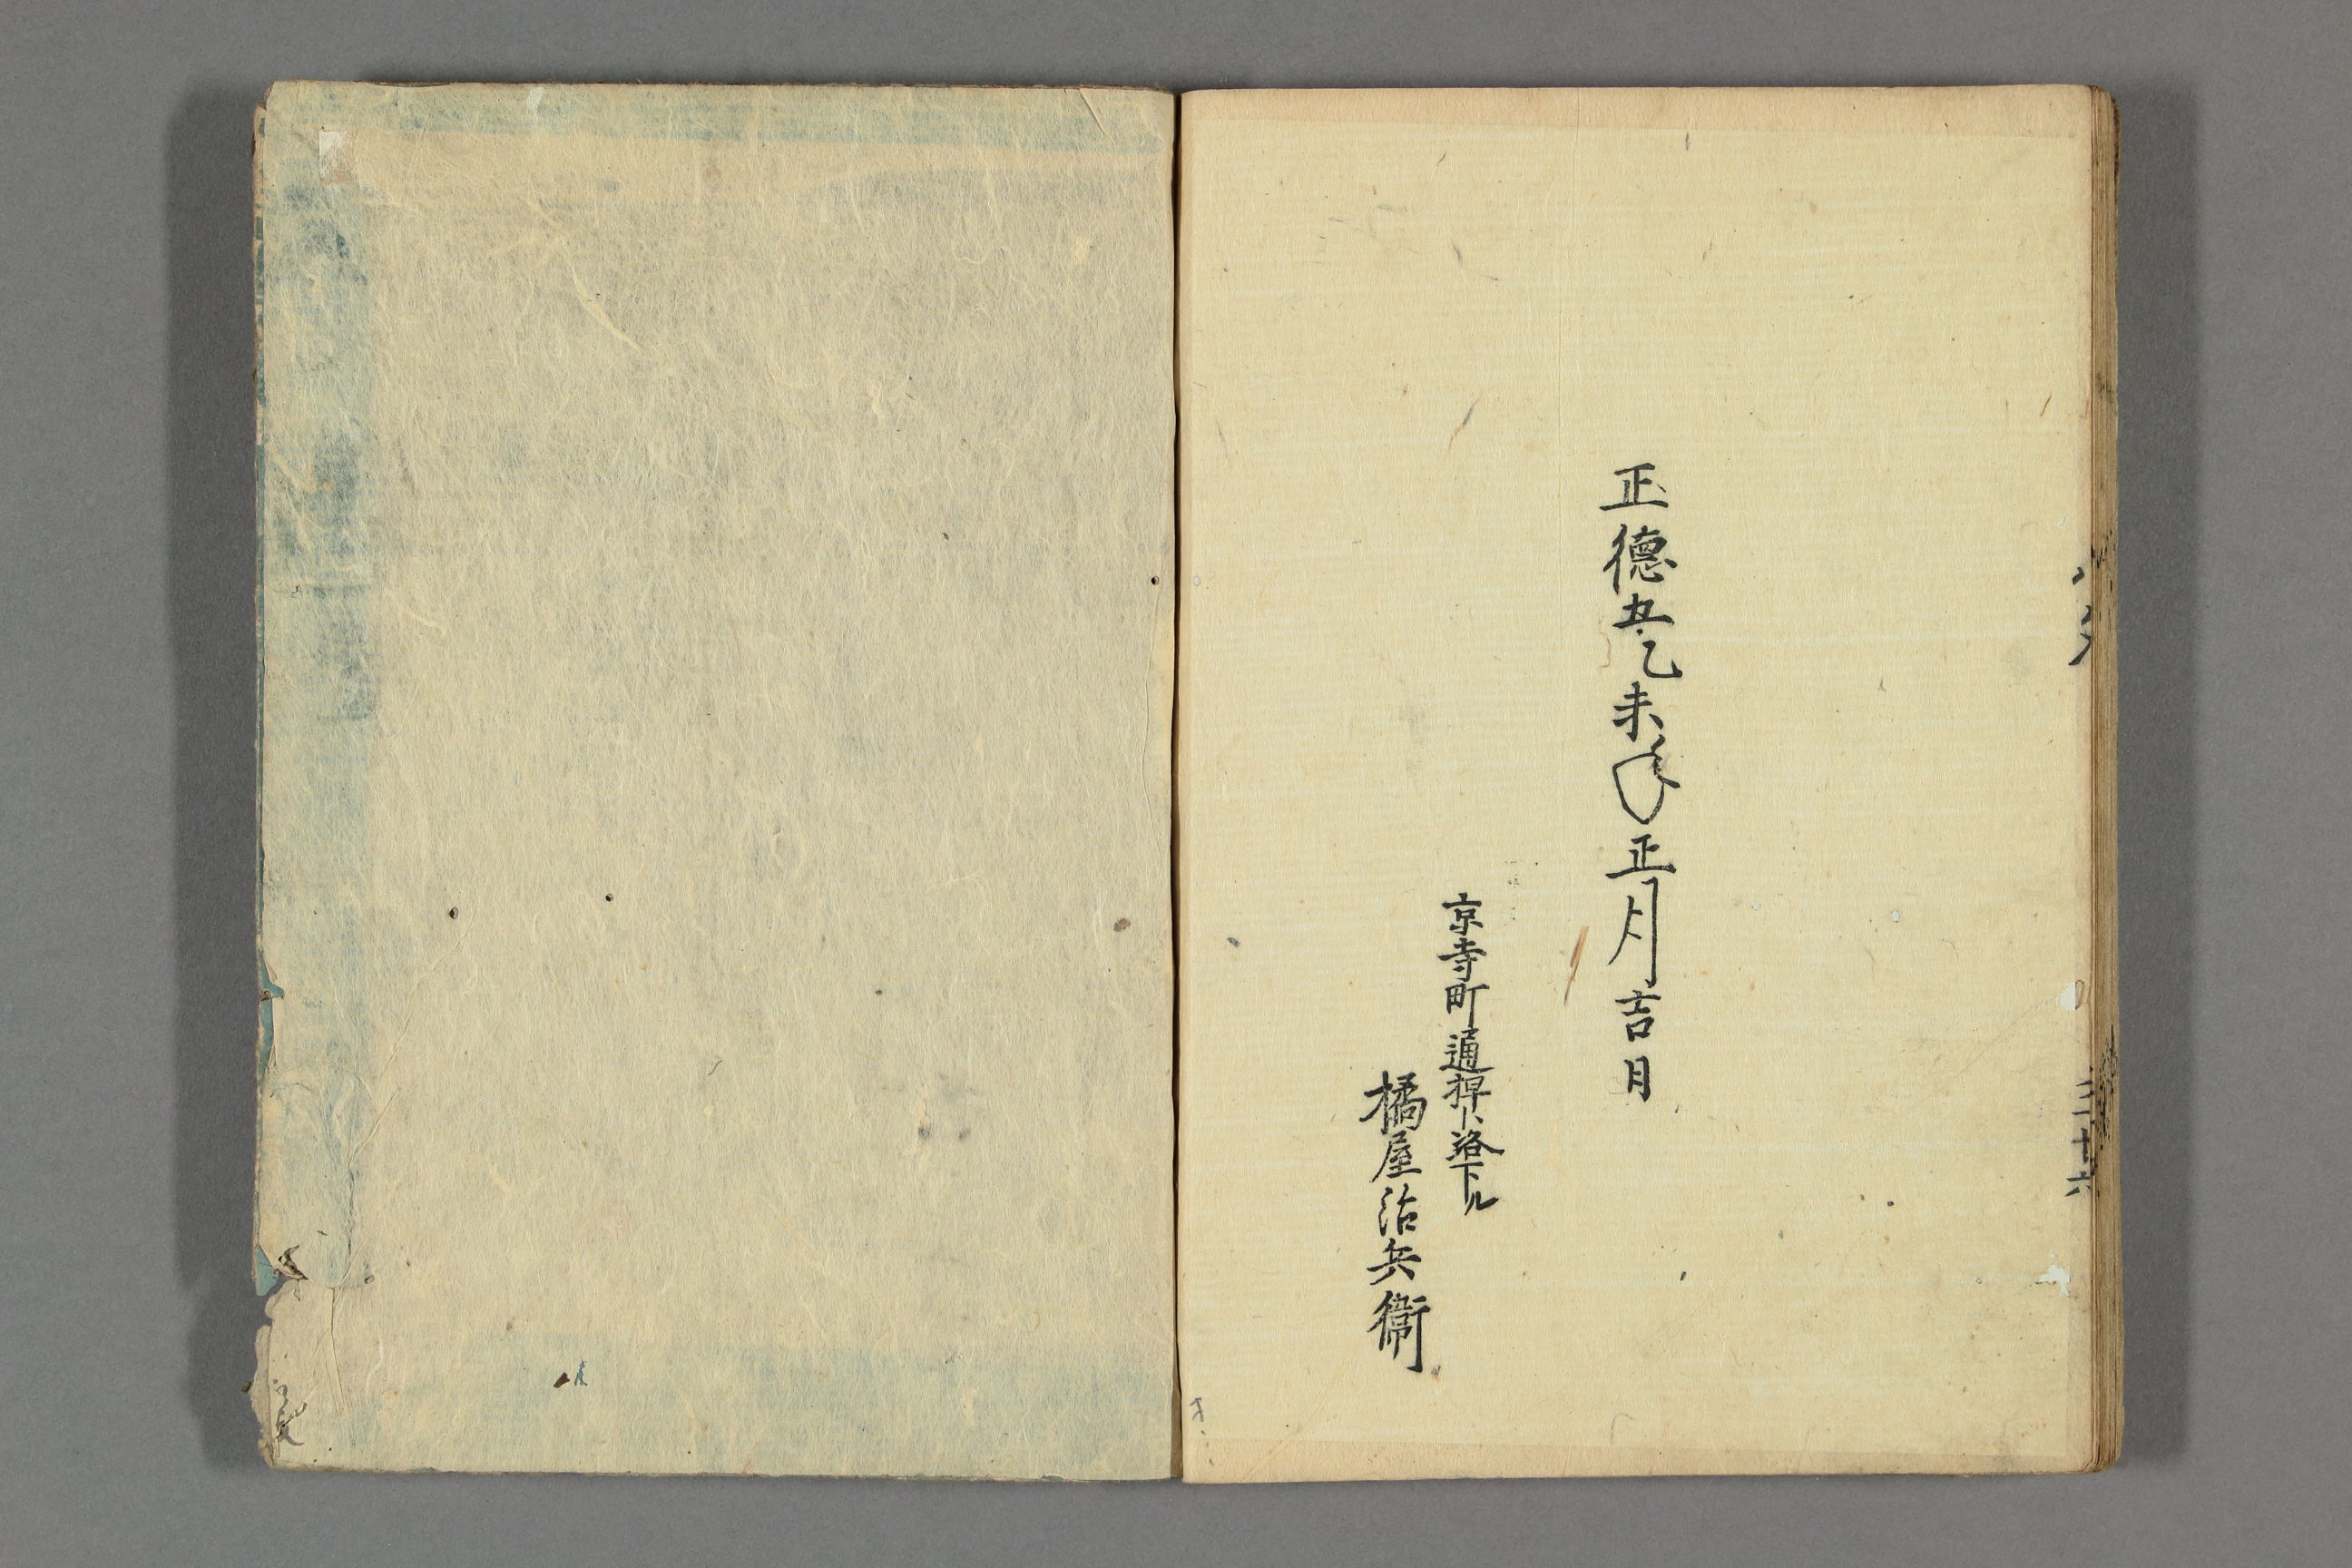 正徳五乙未年正月吉日
京寺町通押小路下ル
橘屋治兵衛